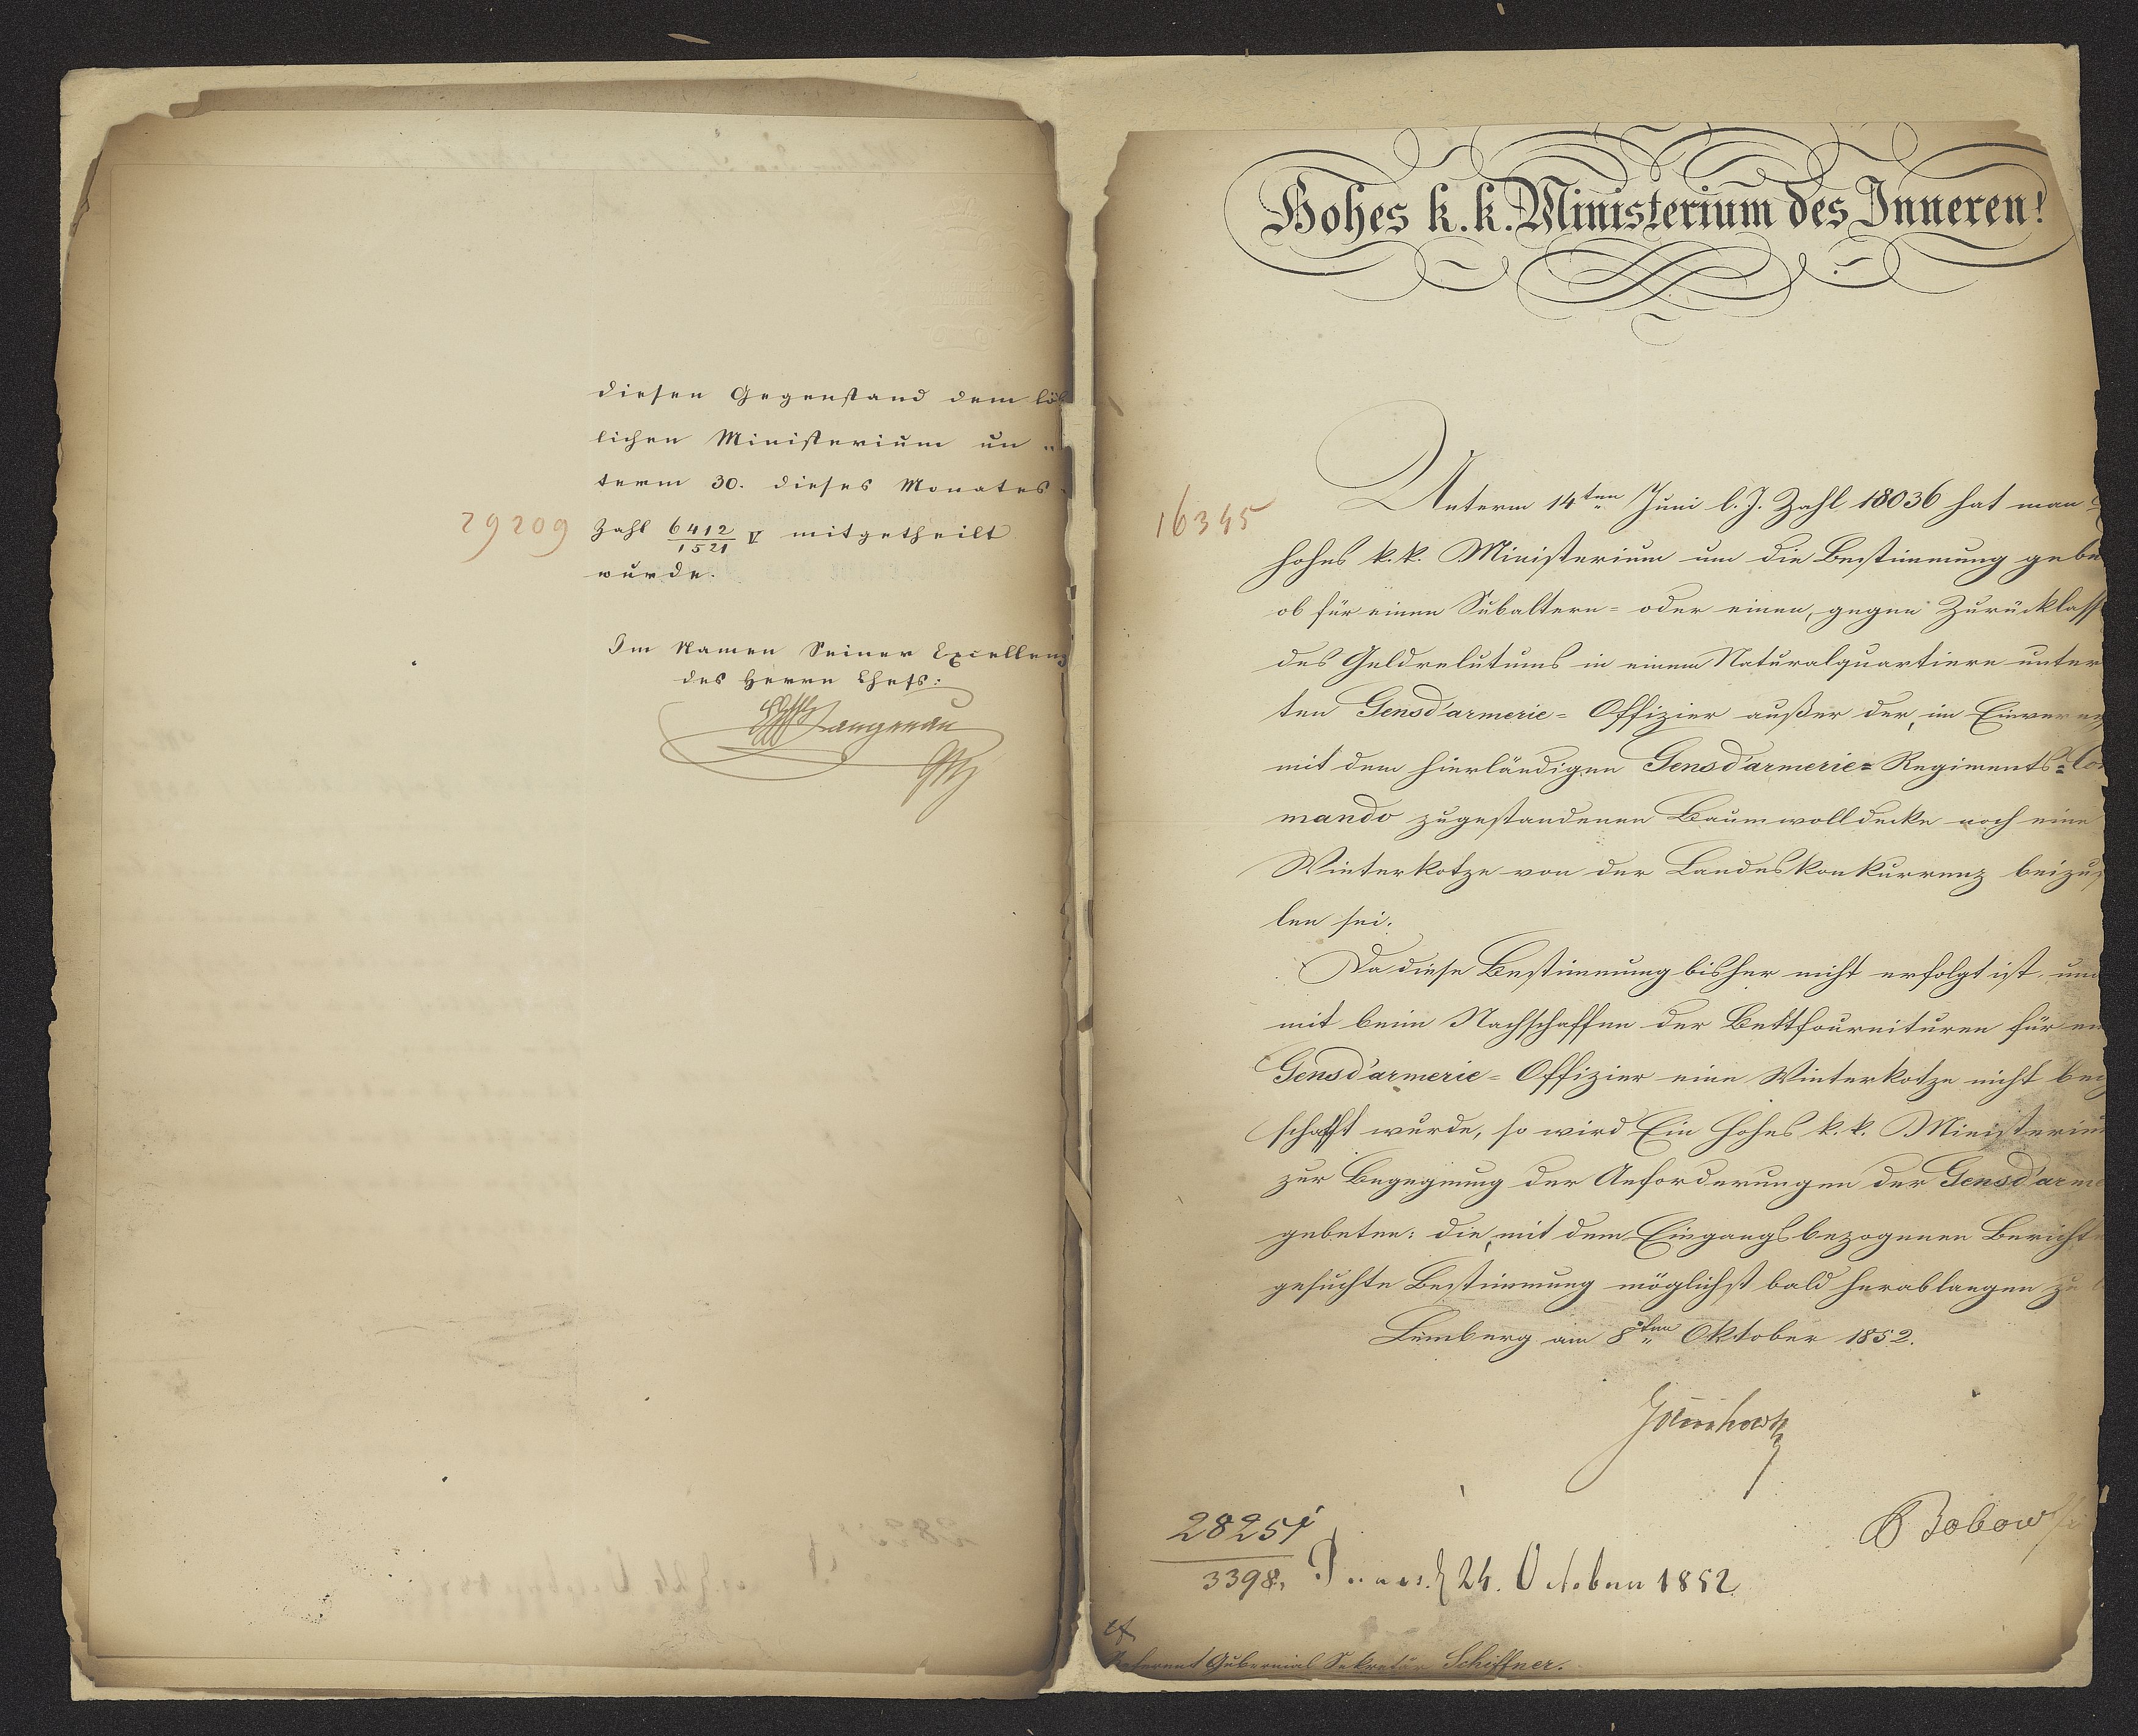 diesen Gegenstand dem löb
lichen Ministerium un „
term 30. dieses Monates
29209 Zahl 6412/1521 V mitgetheilt
wurde.
Im Namen Seiner Excellenz
des Herrn Chefs:
Langenau
Hohes k. k. Ministerium des Inneren!
16345
Unterm 14ten Juni l. J. Zahl 18036 hat man
hohes k. k. Ministerium um die Bestimmung gebe
ob für einen Subaltern= oder einen, gegen Zurücklass
des Geldrelutums in einem Naturalquartiere unter
ten Gensd'armerie= Offizier außer der, im Einverne
mit dem hierländigen Gensd'armerie= Regiments= Co
mando zugestandenen Baumwolldecke noch eine
Winterkotze von der Landeskonkurrenz beizu
len sei.
Da diese Bestimmung bisher nicht erfolgt ist, un
mit beim Nachschaffen der Bettfournituren für
Gensd'armerie= Offizier eine Winterkotze nicht
schafft wurde, so wird Ein hohes k. k. Ministeriu
zur Begegnung der Anforderungen der Gensd'arme
gebeten: die, mit dem Eingangsbezogenen Berichte
gesuchte Bestimmung möglichst bald herablangen zu
Lemberg am 8ten Oktober 1852.
Gołuchowski
28251
3398. 24. October 1852
Referent Gubernial Sekretär Schiffner.